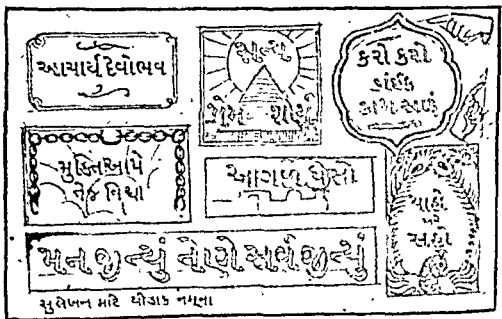 આચાર્ય દેવોભવ
કરો કરો
કાંઈક
મુક્તિ આપે
તેજ વિદ્યા
આગળ ધસો
ચાહો
અને
સહો
મન જીત્યું તેણે સર્વ જીત્યું
સુલેખન માટે થોડાક નમૂના